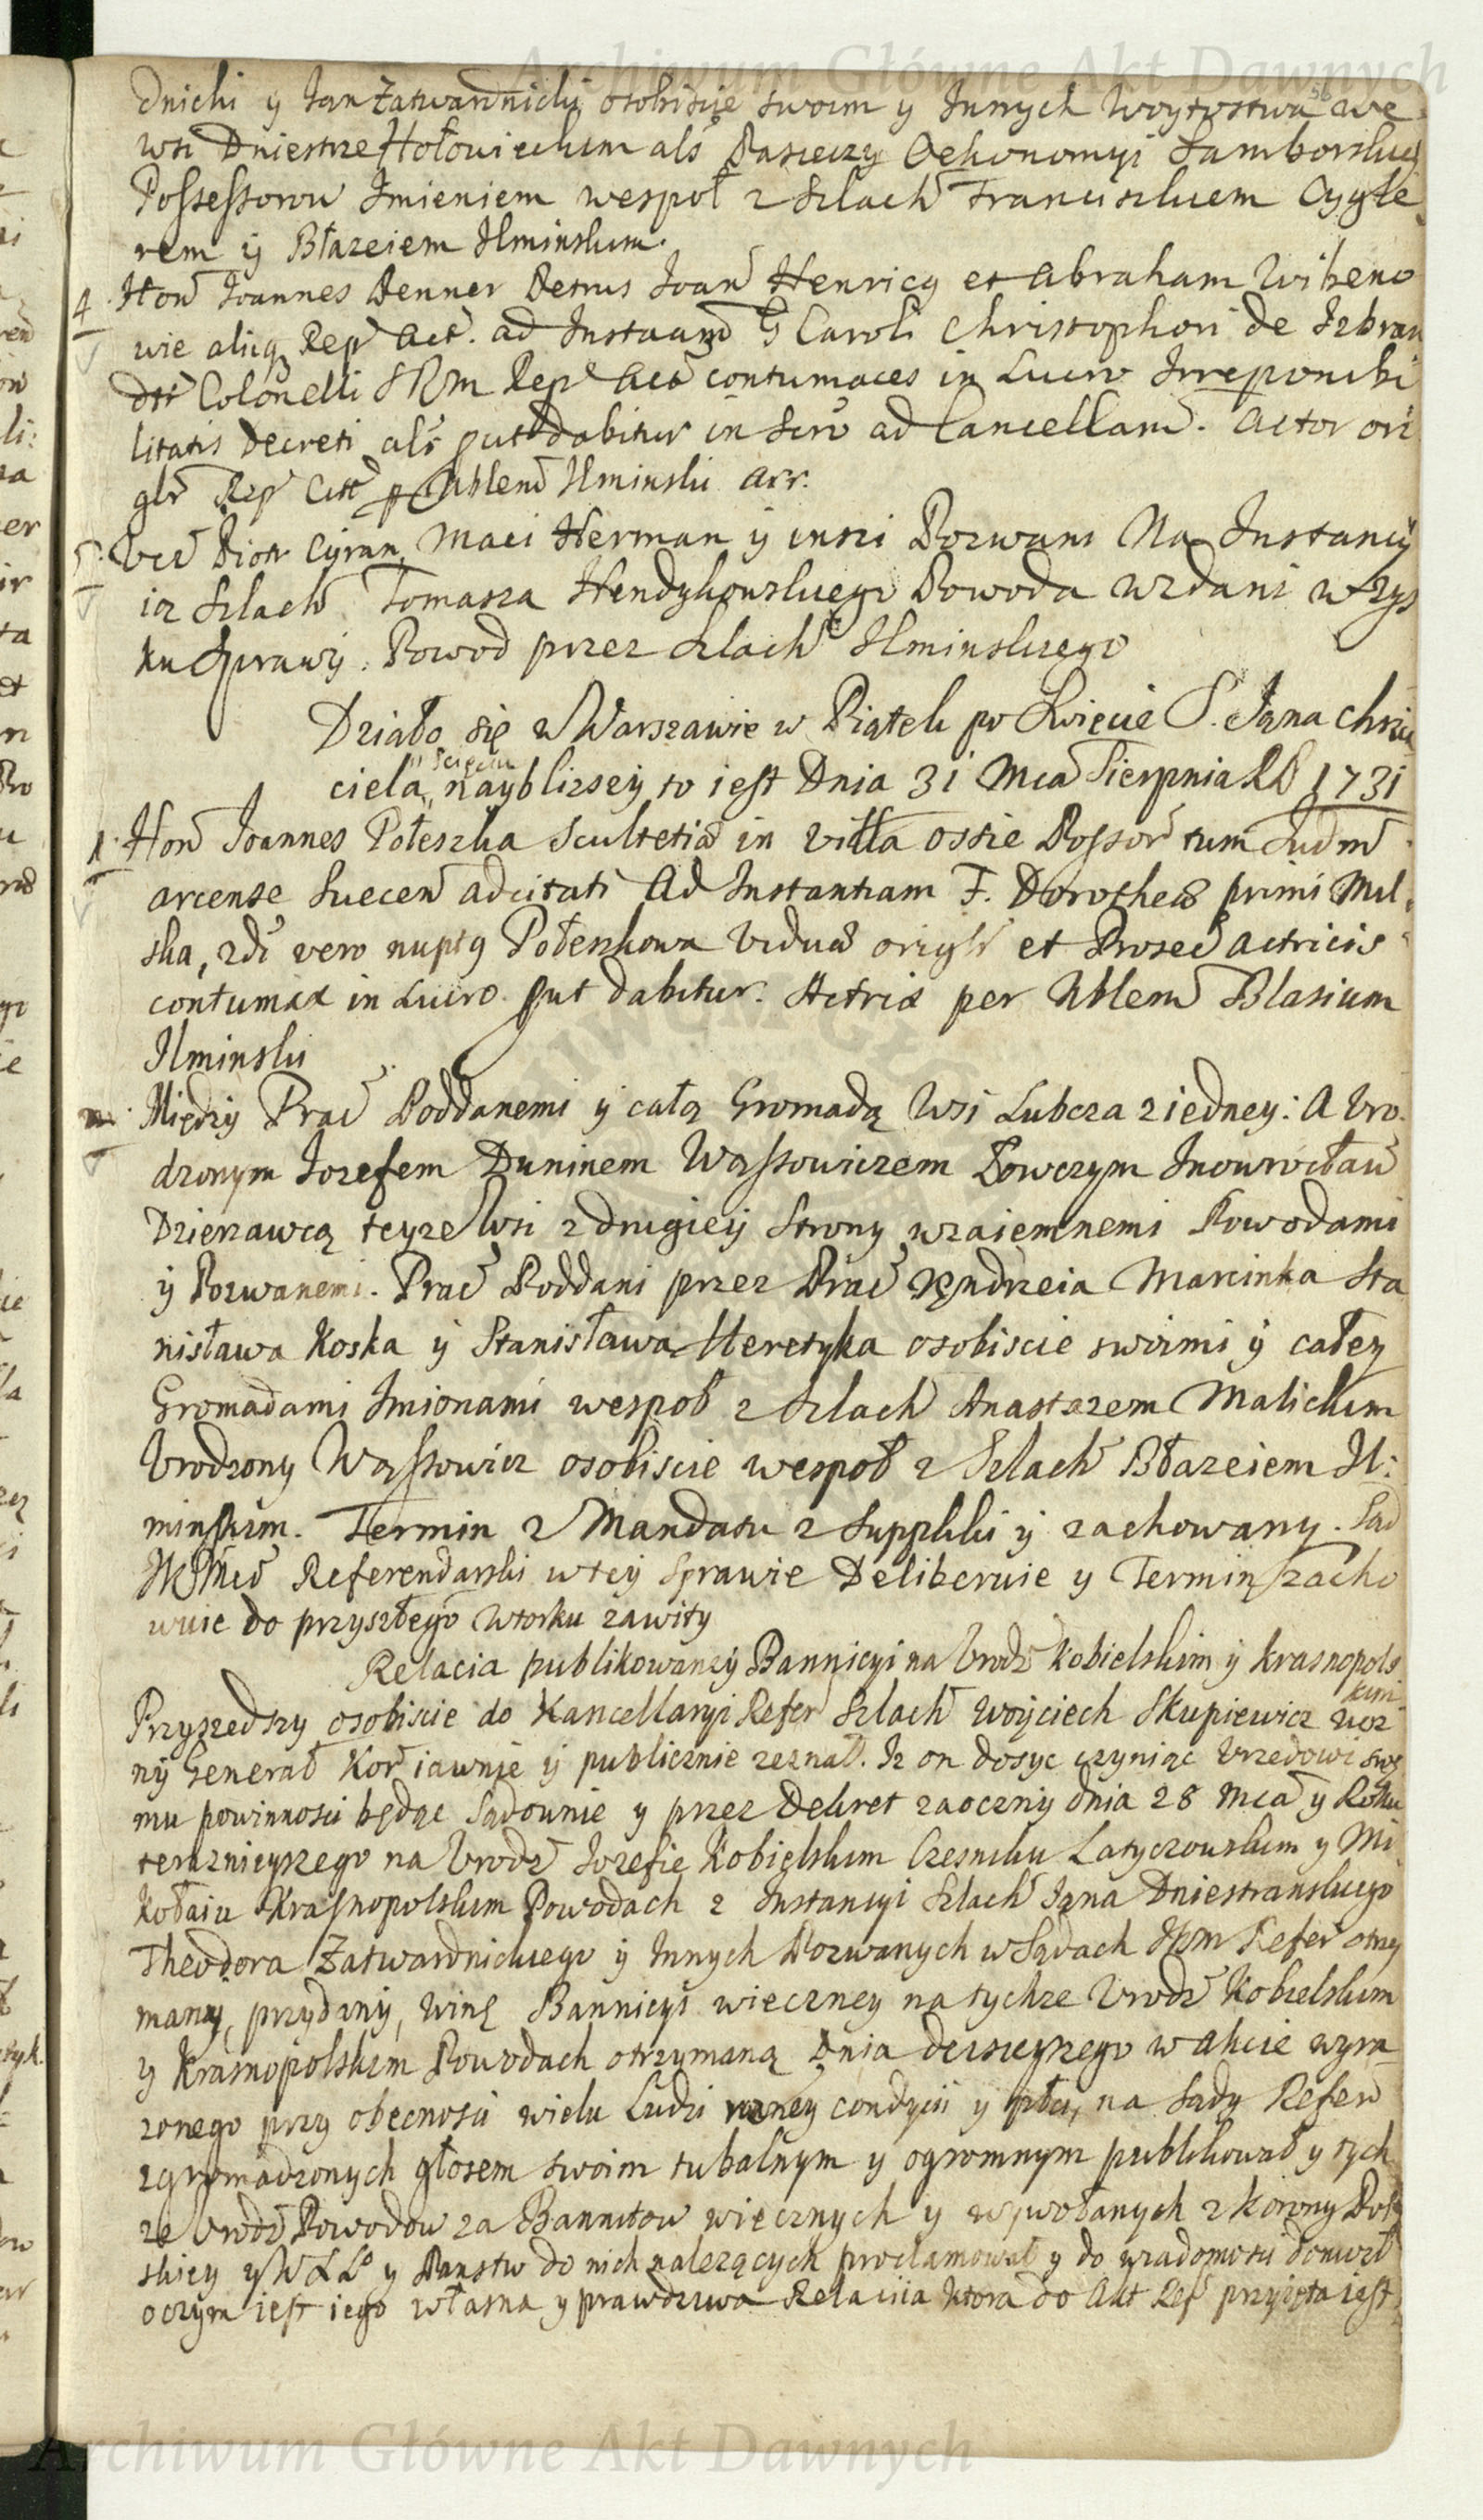 Archiwum Główne Akt Dawnych
56
dnicki y Jan Zatwardnicky osobiscie swoim y Innych Woytostwa we
wsi Dniestrze Hołowieckim als Pasieczy Oekonomyi Samborskiey
Possessorow Imieniem wespoł z Szlach Franciszkiem Cygle
rem y Błazeiem Ilminskim.
4. Hon Joannes Denner Petrus Joan Henricq et Abraham
wie aliiq Rep Act. ad Instaam G Caroli Christophori de Izbran
dtt Colonelli SRM Rep Act contumaces in Lucro Irreponibi
litatis Decreti als put dabitur in Scro ad Cancellam. Actor ori
glr Rep Citt p Nblem Ilminski Arr.
5. Ucć Piotr Cyran, Maci Herman y inszi Pozwani Na Instancy
ią Szlach Tomasza Hendykowskiego Powoda wzdani w Zys
ku Sprawy. Powod przez Szlach Ilminskiego
Działo się w Warszawie w Piątek po Swięcie S. Jana Chrzci
ciela " Scięciu nayblizsey to iest Dnia 31 Mca Sierpnia RP 1731
1. Hon Joannes Połeszka Scultetia in villa Ossie Possor tum Judm
arcense Suecen adcitati Ad Instantiam F. Dorothea primi Mul
ska, 2di vero nuptq Połeszkowa Vidua origlr et Prosec actricis
contumax in Lucro put dabitur. Actrix per Nblem Blasium
Ilminski
2. Między Prac Poddanemi y całą Gromadą Wsi Lubcza z iedney: A Uro
dzonym Jozefem Duninem Wąssowiczem Łowczym Inowrocław
Dzierzawcą teyze Wsi z drugiey Strony wzaiemnemi Powodami
y Pozwanemi. Prac Poddani przez Prac Jędrzeia Marcinka Sta
nisława Koska y Stanisława Heretyka osobiscie swoimi y całey
Gromadami Imionami wespoł z Szlach Anastazem Malickim
Urodzony Wąssowicz osobiscie wespoł z Szlach Błazeiem Il:
minskim. Termin z Mandatu z Suppliki y zachowany. Sąd
JKMci Referendarski w tey Sprawie Deliberuie y Termin zacho
wuie do przyszłego Wtorku zawity
Relacia publikowaney Bannicyi na Urodz Kobielskim y Krasnopols
kim
Przyszedszy osobiscie do Kancellaryi Refer Szlach Woyciech Skupiewicz Woz
ny Generał Kor iawnie y publicznie zeznał. Iz on dosyc czyniąc Urzedowi swe
mu powinnosci będąc Sądownie y przez Dekret zaoczny dnia 28 Mca y Roku
teraznieyszego na Urodz Jozefie Kobielskim Czesniku Latyczowskim y Mi
kołaiu Krasnopolskim Powodach z Instancyi Szlach Jana Dniestranskiego
Theodora Zatwardnickiego y Innych Pozwanych w Sądach JKM Refer otrzy
many, przydany, winę Bannicyi wieczney na tychze Urodz Kobielskim
y Krasnopolskim Powodach otrzymaną Dnia dzisieyszego w akcie wyra
zonego przy obecnosci wielu Ludzi rozney condycii y płci, na Sądy Refer
zgromadzonych głosem swoim tubalnym y ogromnym publikował y tych
ze Urodz Powodow za Bannitow wiecznych y wywołanych z Korony Pol
skiey y W X L° y Panstw do nich nalezących proclamował y do wiadomosci doniosł
oczym iest iego własna y prawdziwa Relacija ktora do Akt Ref przyięta iest
Archiwum Główne Akt Dawnych